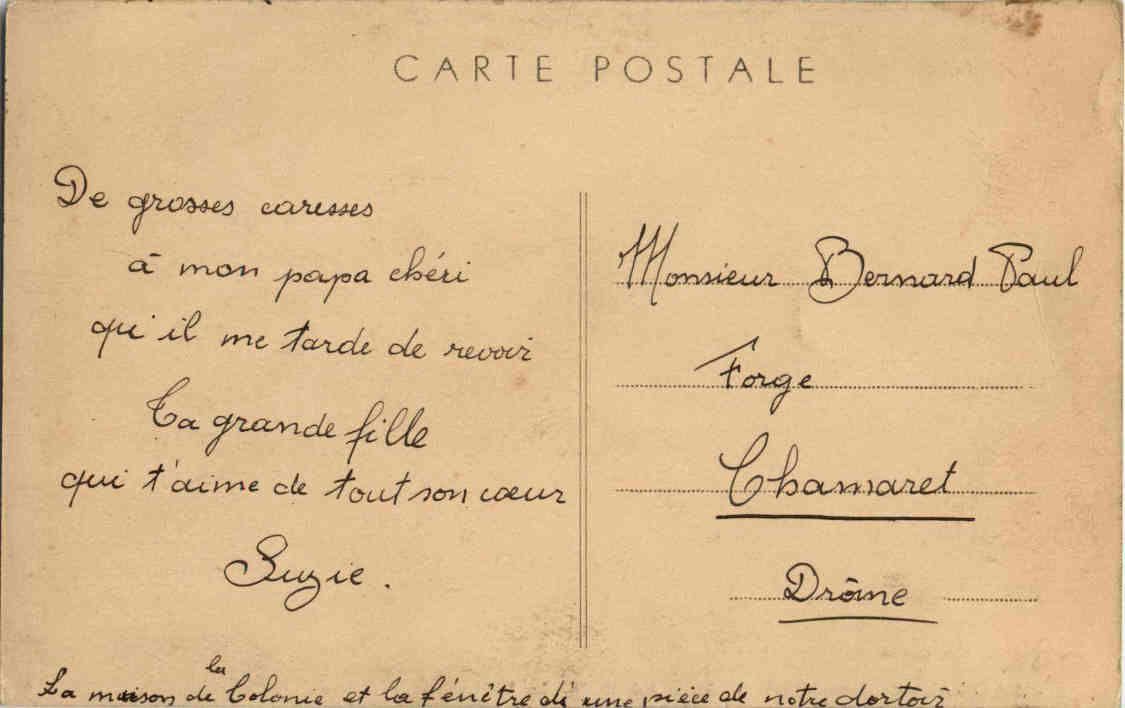 CARTE POSTALE
De grosses caresses
à mon papa chéri
qu'il me tarde de revoir
Ta grande fille
qui t'aime de tout son cœur
Suzie.
Monsieur Bernard Paul
Forge
Chamaret
Drôme
La maison de la Colonie et la fenêtre de une pièce de notre dortoir